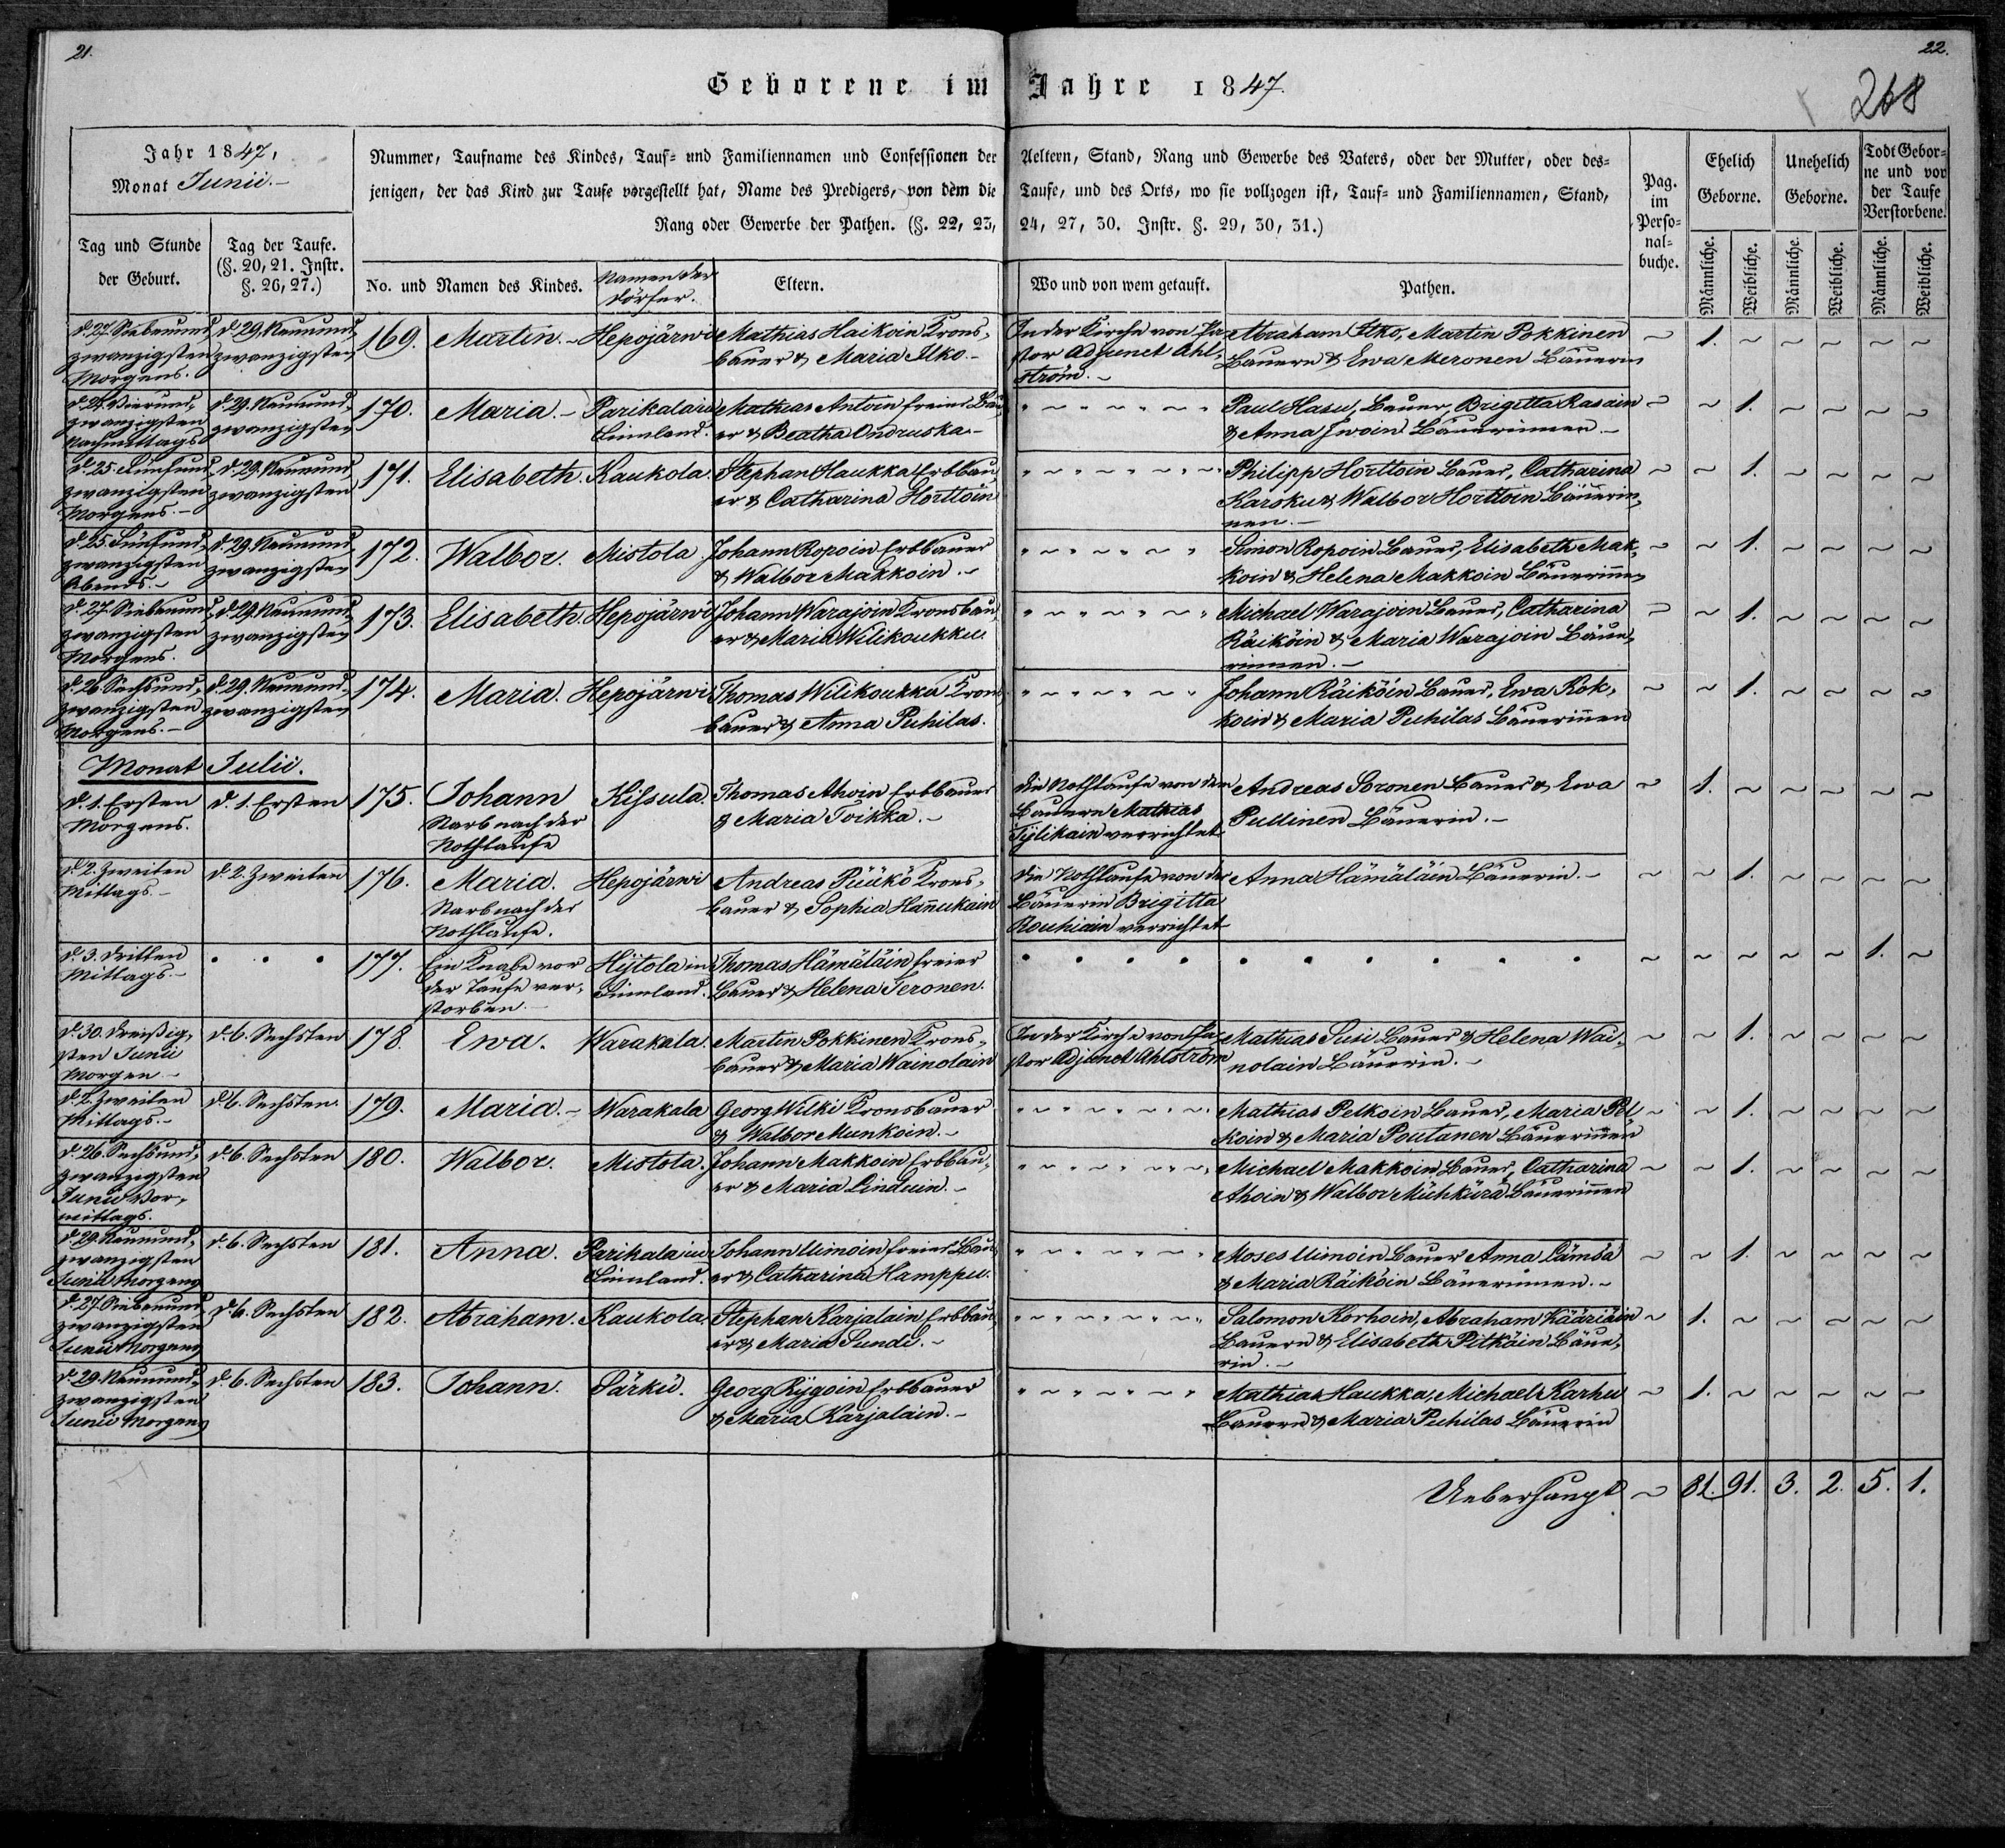 21.
22.
268
Geborene im Jahre 1847.
Jahr 1847,
Monat Junii.
Nummer, Taufname des Kindes, Tauf- und Familiennamen und Confessionen der Aeltern, Stand, Rang und Gewerbe des Vaters, oder der Mutter, oder des-
jenigen, der das Kind zur Taufe vorgestellt hat, Name des Predigers, von dem die Taufe, und des Orts, wo sie vollzogen ist, Tauf- und Familiennamen, Stand,
Rang oder Gewerbe der Pathen. (§. 22, 23, 24, 27, 30. Instr. §. 29, 30, 31.)
Pag.
im
Perso-
nal-
buche.
Ehelich
Geborne.
Unehelich
Geborne.
Todt Gebor-
ne und vor
der Taufe
Verstorbene.
Tag und Stunde
der Geburt.
Tag der Taufe.
(§. 20, 21. Instr.
§. 26, 27.)
No. und Namen des Kindes.
Namen der
Dörfer.
Eltern.
Wo und von wem getauft.
Pathen.
Männliche.
Weibliche.
Männliche.
Weibliche.
Männliche.
Weibliche.
d. 27. Siebenund
zwanzigsten
Morgens.
d. 29. Neunund
zwanzigsten
169. Martin.
Hepojärwi
Mathias Haikoin Krons-
bauer & Maria Ilko.
In der Kirche von Pa
stor Adjunct Ahl-
ström.
Abraham Itko, Martin Pokkinen
Bauern & Ewa Meronen Bäuerin
1.
d. 24. Vierund-
zwanzigsten
Nachmittags
d. 29. Neunund
zwanzigsten
170. Maria.
Parikala in
Finnland.
Mathias Antoin freier Bau
er & Beatha Ondruska
Paul Hasu, Bauer, Brigitta Rasain
& Anna Iwoin Bäuerinnen.
1.
d. 25. Fünfund
zwanzigsten
Morgens.
d. 29. Neunund
zwanzigsten
171. Elisabeth.
Kaukola.
Stephan Haukka Erbbau
er & Catharina Horttoin
Philipp Horttoin Bauer, Catharina
Karsku & Walbor Horttoin Bäuerin-
nen.
1.
d. 25. Fünfund-
zwanzigsten
Abends.
d. 29. Neunund
zwanzigsten
172. Walbor.
Mistola
Johann Ropoin Erbbauer
& Walbor Makkoin.
Simon Ropoin Bauer, Elisabeth Mak-
koin & Helena Makkoin Bäuerinnen
1.
d. 27. Siebenund
zwanzigsten
Morgens.
d. 29. Neunund
zwanzigsten
173. Elisabeth.
Hepojärwi
Johann Warajoin Kronsbau
er & Maria Wilikoukku
Michael Warajoin Bauer, Catharina
Räiköin & Maria Warajoin Bäue-
rinnen.
1.
d. 26. Sechsund-
zwanzigsten
Morgens.
d. 29. Neunund-
zwanzigsten
174. Maria.
Hepojärwi
Thomas Wilikoukku Krons
bauer & Anna Puhilas.
Johann Räiköin Bauer, Ewa Kok-
koin & Maria Puhilas Bäuerinnen
1.
Monat Julii.
d. 1. Ersten
Morgens.
d. 1. Ersten
175. Johann
Starb nach der
Nothtaufe
Kissula.
Thomas Ahoin Erbbauer
& Maria Toikka.
Die Nothtaufe von dem
Bauern Mathias
Tylikain verrichtet
Andreas Soronen Bauer & Ewa
Pullinen Bäuerin.
1.
d. 2. Zweiten
Mittags.
d. 2. Zweiten
176. Maria.
Starb nach der
Nothtaufe.
Hepojärwi
Andreas Püükö Krons-
bauer & Sophia Hannukain
Die Nothtaufe von der
Bäuerin Brigitta
Rouhiain verrichtet
Anna Hämäläin Bäuerin.
1.
d. 3. Dritten
Mittags.
177. Ein Knabe vor
der Taufe ver-
storben.
Hiitola in
Finnland.
Thomas Hämäläin freier
Bauer & Helena Teronen.
1.
d. 30. Dreißig-
sten Junii
Morgen
d. 6. Sechsten
178. Ewa.
Warakala.
Martin Pokkinen Krons-
bauer & Maria Wainolain
In der Kirche von Pa-
stor Adjunct Ahlström
Mathias Susi Bauer & Helena Wai-
nolain Bäuerin.
1.
d. 2. Zweiten
Mittags.
d. 6. Sechsten.
179. Maria.
Warakala
Georg Wilki Kronsbauer
& Walbor Munkoin.
Mathias Pelkoin Bauer, Maria Pel
koin & Maria Poutanen Bäuerinnen
1.
d. 26. Sechsund-
zwanzigsten
Junii Vor-
mittags.
d. 6. Sechsten
180. Walbor.
Mistola.
Johann Makkoin Erbbau-
er & Maria Linduin.
Michael Makkoin Bauer, Catharina
Ahoin & Walbor Mühkürä Bäuerinnen
1.
d. 29. Neunund-
zwanzigsten
Junii Morgens
d. 6. Sechsten
181. Anna.
Parikala in
Finnland.
Johann Uimoin freier Bau
er & Catharina Hamppu.
Moses Uimoin Bauer Anna Lämsä
& Maria Räiköin Bäuerinnen.
1.
d. 27. Siebenund
zwanzigsten
Junii Morgens
d. 6. Sechsten
182. Abraham.
Kaukola.
Stephan Karjalain Erbbau
er & Maria Sundi.
Salomon Korhoin, Abraham Kääriäin
Bauern & Elisabeth Pitkäin Bäue-
rin.
1.
d. 29. Neunund-
zwanzigsten
Junii Morgens
d. 6. Sechsten
183. Johann.
Särkü.
Georg Rygoin Erbbauer
& Maria Karjalain.
Mathias Haukka, Michael Karhu
Bauern & Maria Puhilas Bäuerin
1.
Ueberhaupt 81. 91. 3. 2. 5. 1.